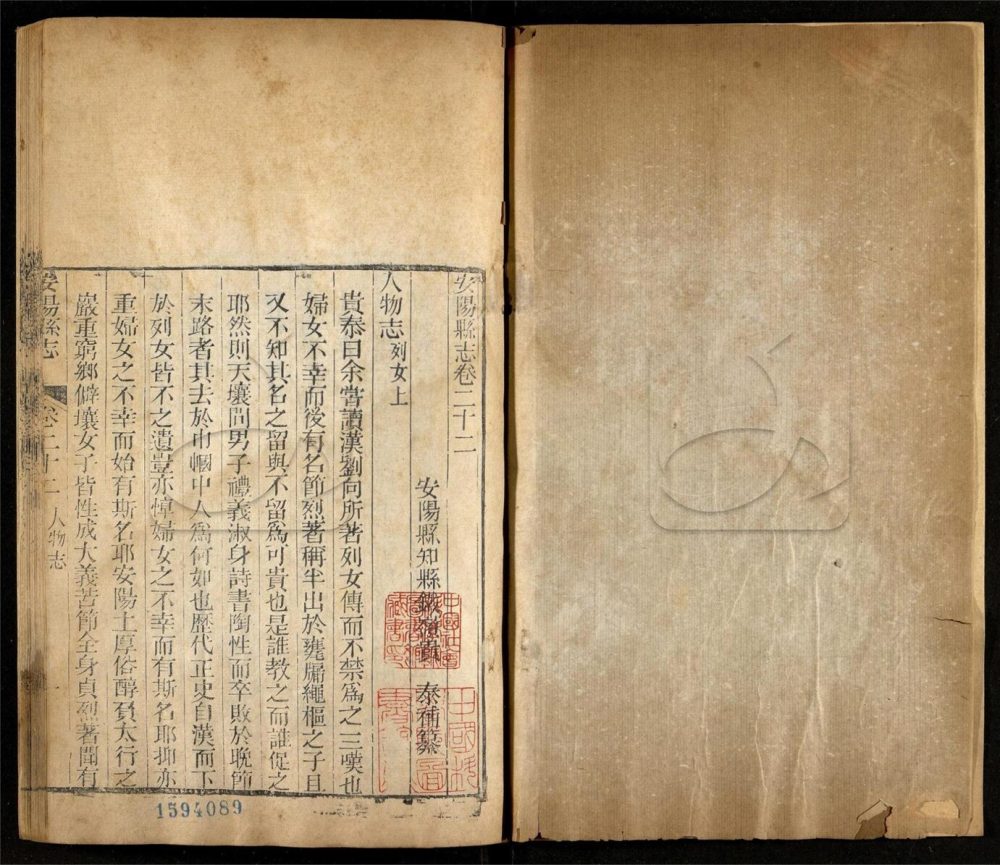 安陽縣志卷二十二
安陽縣知縣 貴泰補纂
人物志 列女上
貴泰曰余嘗讀漢劉向所著列女傳而不禁爲之三嘆也
婦女不幸而後有名節烈著稱半出於甕牖繩樞之子且
又不知其名之留與不留爲可貴也是誰教之而誰促之
耶然則天壤間男子禮義淑身詩書陶性而卒敗於晚節
末路者其去於巾幗中人爲何如也歷代正史自漢而下
於列女皆不之遺豈亦悼婦女之不幸而有斯名耶抑亦
重婦女之不幸而始有斯名耶安陽土厚俗醇負太行之
巖重窮鄉僻壤女子皆性成大義苦節全身貞烈著聞有
安陽縣志 卷二十二 人物志 一
1594089